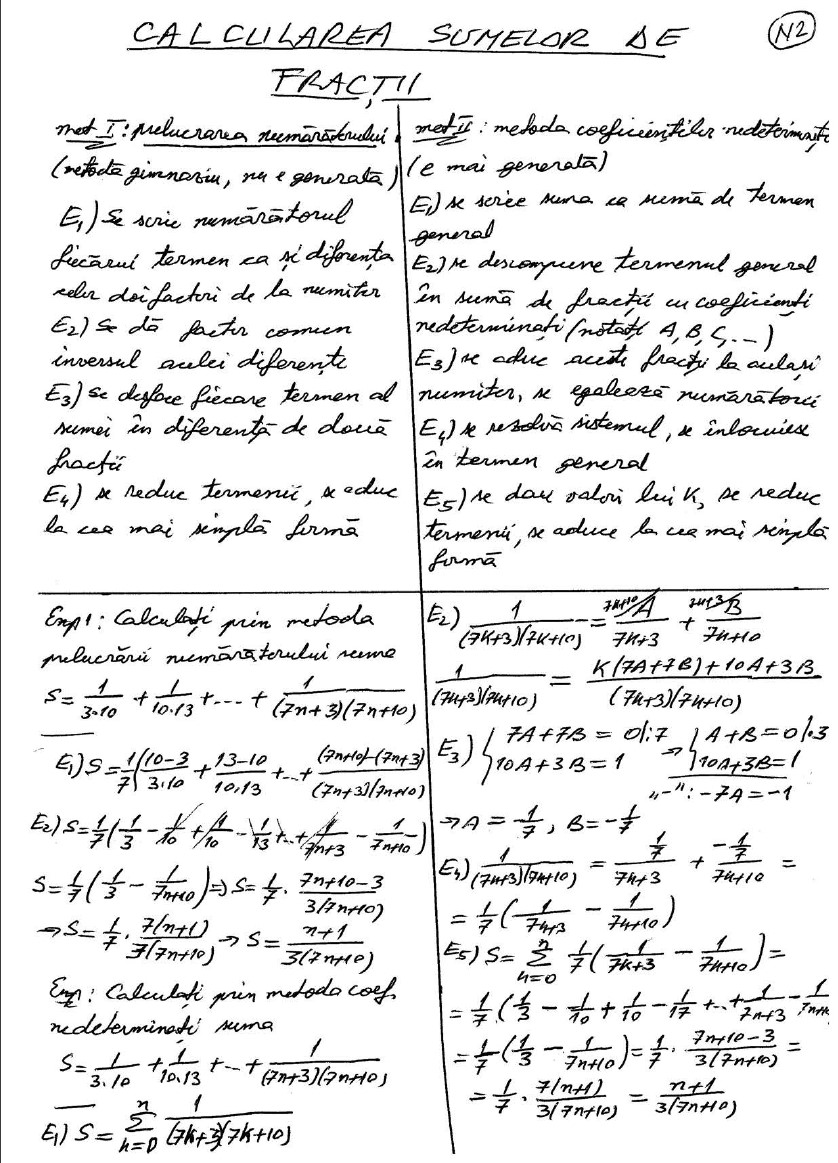 CALCULAREA SUMELOR DE
N2
FRACȚII
met I: prelucrarea numărătorului
(metodă gimnaziu, nu e generală)
E₁) Se scrie numărătorul
fiecărui termen ca și diferența
celor doi factori de la numitor
E₂) Se dă factor comun
inversul acelei diferențe
E₃) se desface fiecare termen al
sumei în diferență de două
fracții
E₄) se reduc termenii, se aduc
la cea mai simplă formă
met II: metoda coeficienților nedeterminați
(e mai generală)
E₁) se scrie suma ca sumă de termen
general
E₂) se descompune termenul general
în sumă de fracții cu coeficienți
nedeterminați (notați A, B, C, ...)
E₃) se aduc aceste fracții la același
numitor, se egalează numărătorii
E₄) se rezolvă sistemul, se înlocuiesc
în termen general
E₅) se dau valori lui K, se reduc
termenii, se aduce la cea mai simplă
formă
Exp1: Calculați prin metoda
prelucrării numărătorului suma
S = 1/(3·10) + 1/(10·13) + ... + 1/((7n+3)(7n+10))
E₁) S = 1/7 ((10-3)/(3·10) + (13-10)/(10·13) + ... + ((7n+10)-(7n+3))/((7n+3)(7n+10))
E₂) S = 1/7 (1/3 - 1/10 + 1/10 - 1/13 + ... + 1/(7n+3) - 1/(7n+10))
S = 1/7 (1/3 - 1/(7n+10)) ⇒ S = 1/7 · (7n+10-3)/(3(7n+10))
→ S = 1/7 · 7(n+1)/(3(7n+10)) → S = (n+1)/(3(7n+10))
Exp2: Calculați prin metoda coef.
nedeterminați suma
S = 1/(3·10) + 1/(10·13) + ... + 1/((7n+3)(7n+10))
E₁) S = Σ n k=0 1/((7k+3)(7k+10))
E₂) 1/((7k+3)(7k+10)) = 7k+10/ A/(7k+3) + 7k+3/ B/(7k+10)
1/((7k+3)(7k+10)) = (K(7A+7B)+10A+3B)/((7k+3)(7k+10))
E₃) { 7A+7B = 0 |:7 → { A+B = 0 |·3
10A+3B = 1 10A+3B = 1
"-": -7A = -1
→ A = 1/7, B = -1/7
E₄) 1/((7k+3)(7k+10)) = (1/7)/(7k+3) + (-1/7)/(7k+10) =
= 1/7 (1/(7k+3) - 1/(7k+10))
E₅) S = Σ n k=0 1/7 (1/(7k+3) - 1/(7k+10)) =
= 1/7 (1/3 - 1/10 + 1/10 - 1/17 + ... + 1/(7n+3) - 1/(7n+10
= 1/7 (1/3 - 1/(7n+10)) = 1/7 · (7n+10-3)/(3(7n+10)) =
= 1/7 · 7(n+1)/(3(7n+10)) = (n+1)/(3(7n+10))